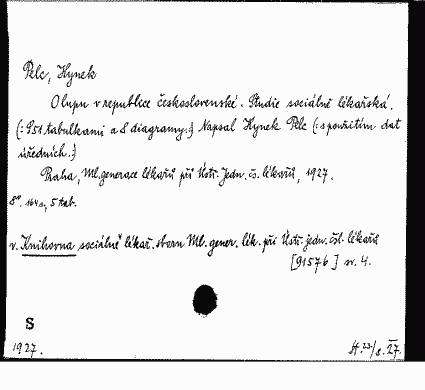 Pelc, Hynek
O lupu v republice československé. Studie sociálně lékařská.
(: S 51 tabulkami a 8 diagramy :) Napsal Hynek Pelc (: s použitím dat
úředních. :)
Praha, Ml. generace lékařů při Ústř. Jedn. čs. lékařů, 1927.
8°. 164 s, 5 tab.
v. Knihovna sociálně lékař. sboru Ml. gener. lék. při Ústř. jedn. čsl. lékařů
[91576] sv. 4.
S
1927.